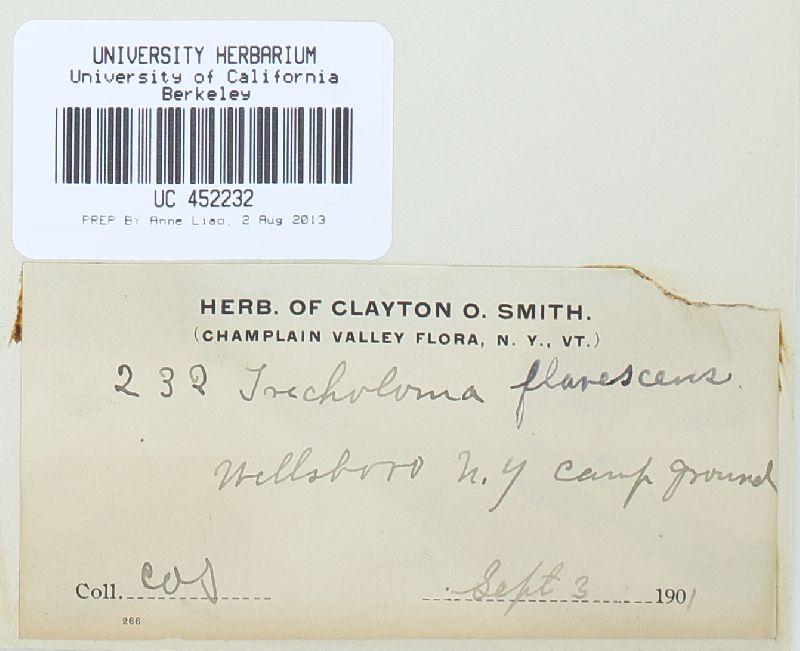 UNIVERSITY HERBARIUM
University of California
Berkeley
UC 452232
PREP BY Anne Liao, 2 Aug 2013
HERB. OF CLAYTON O. SMITH.
(CHAMPLAIN VALLEY FLORA, N. Y., VT.)
232 Tricholoma flavescens.
Willsboro N.Y camp ground
Coll. COS Sept 3 1901
266